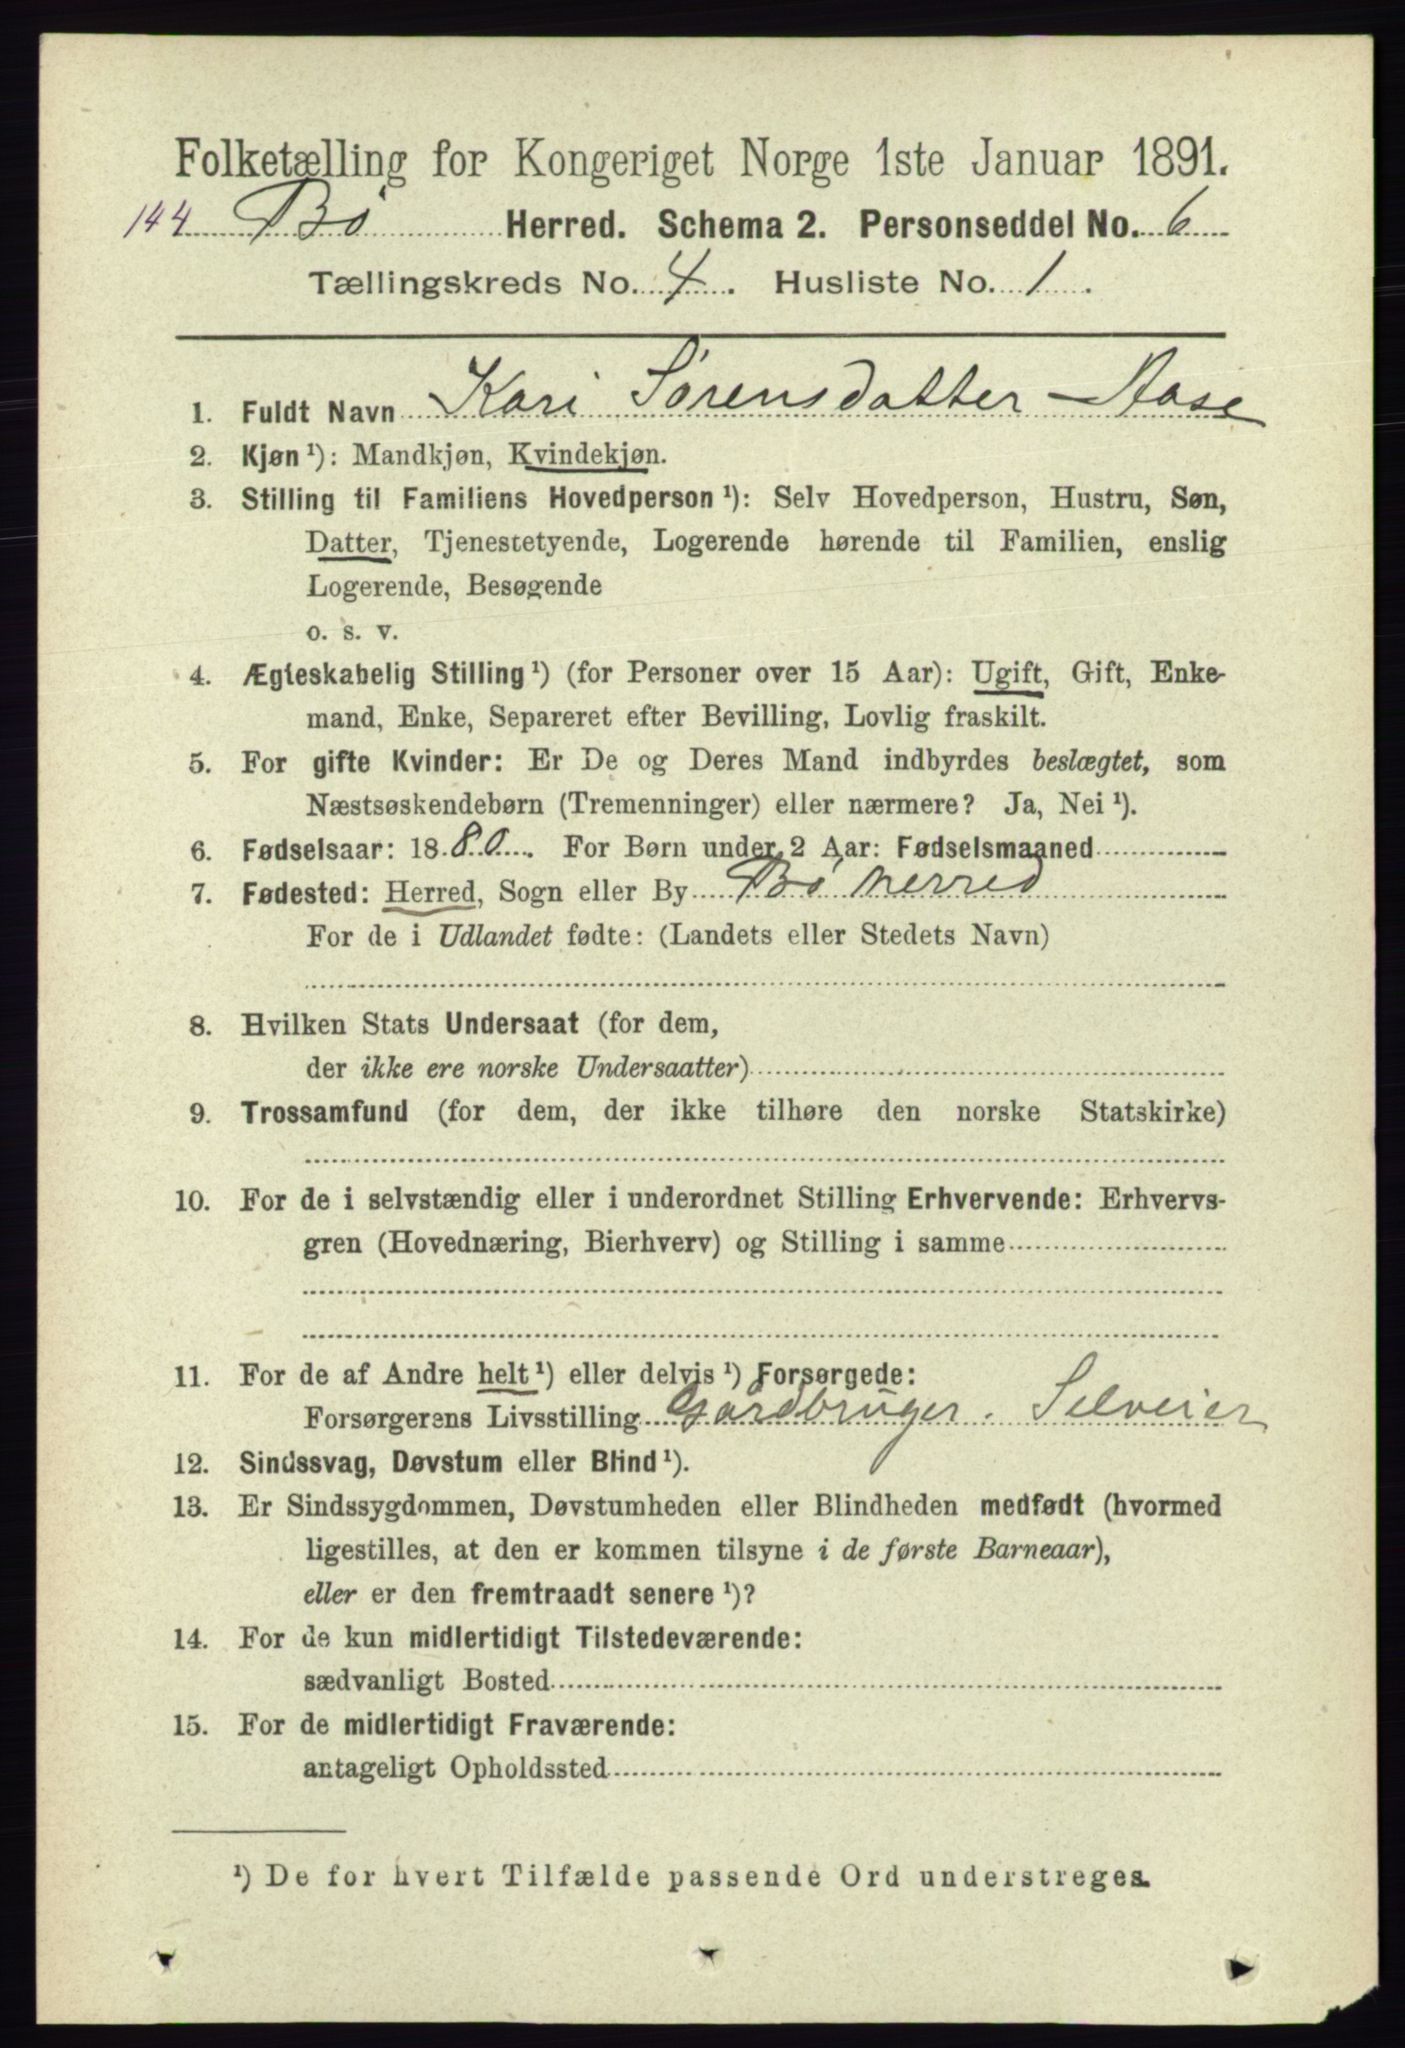 Folketælling for Kongeriget Norge 1ste Januar 1891.
144 Bø Herred. Schema 2. Personseddel No. 6
Tællingskreds No. 4. Husliste No. 1.
1. Fuldt Navn Kari Sørensdatter Aase
2. Kjøn ¹): Mandkjøn, Kvindekjøn.
3. Stilling til Familiens Hovedperson ¹): Selv Hovedperson, Hustru, Søn,
Datter, Tjenestetyende, Logerende hørende til Familien, enslig
Logerende, Besøgende
o. s. v.
4. Ægteskabelig Stilling ¹) (for Personer over 15 Aar): Ugift, Gift, Enke-
mand, Enke, Separeret efter Bevilling, Lovlig fraskilt.
5. For gifte Kvinder: Er De og Deres Mand indbyrdes beslægtet, som
Næstsøskendebørn (Tremenninger) eller nærmere? Ja, Nei ¹).
6. Fødselsaar: 1880. For Børn under 2 Aar: Fødselsmaaned
7. Fødested: Herred, Sogn eller By Bø herred
For de i Udlandet fødte: (Landets eller Stedets Navn)
8. Hvilken Stats Undersaat (for dem,
der ikke ere norske Undersaatter)
9. Trossamfund (for dem, der ikke tilhøre den norske Statskirke)
10. For de i selvstændig eller i underordnet Stilling Erhvervende: Erhvervs-
gren (Hovednæring, Bierhverv) og Stilling i samme
11. For de af Andre helt ¹) eller delvis ¹) Forsørgede:
Forsørgerens Livsstilling Gårdbruger. Selveier
12. Sindssvag, Døvstum eller Blind ¹).
13. Er Sindssygdommen, Døvstumheden eller Blindheden medfødt (hvormed
ligestilles, at den er kommen tilsyne i de første Barneaar),
eller er den fremtraadt senere ¹)?
14. For de kun midlertidigt Tilstedeværende:
sædvanligt Bosted
15. For de midlertidigt Fraværende:
antageligt Opholdssted
¹) De for hvert Tilfælde passende Ord understreges.